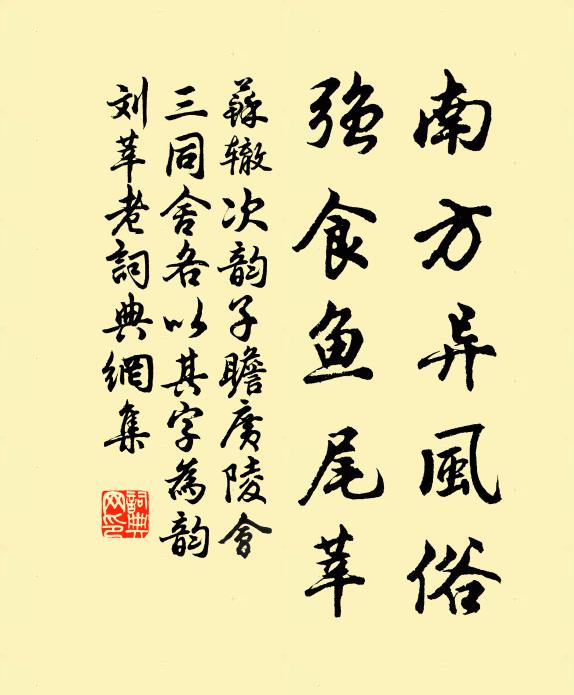 南方异風俗
強食鱼尾莘
蘇辙次韵子瞻廣陵會
三同舍各以其字為韵
刘莘老詞典網集
詞典网印